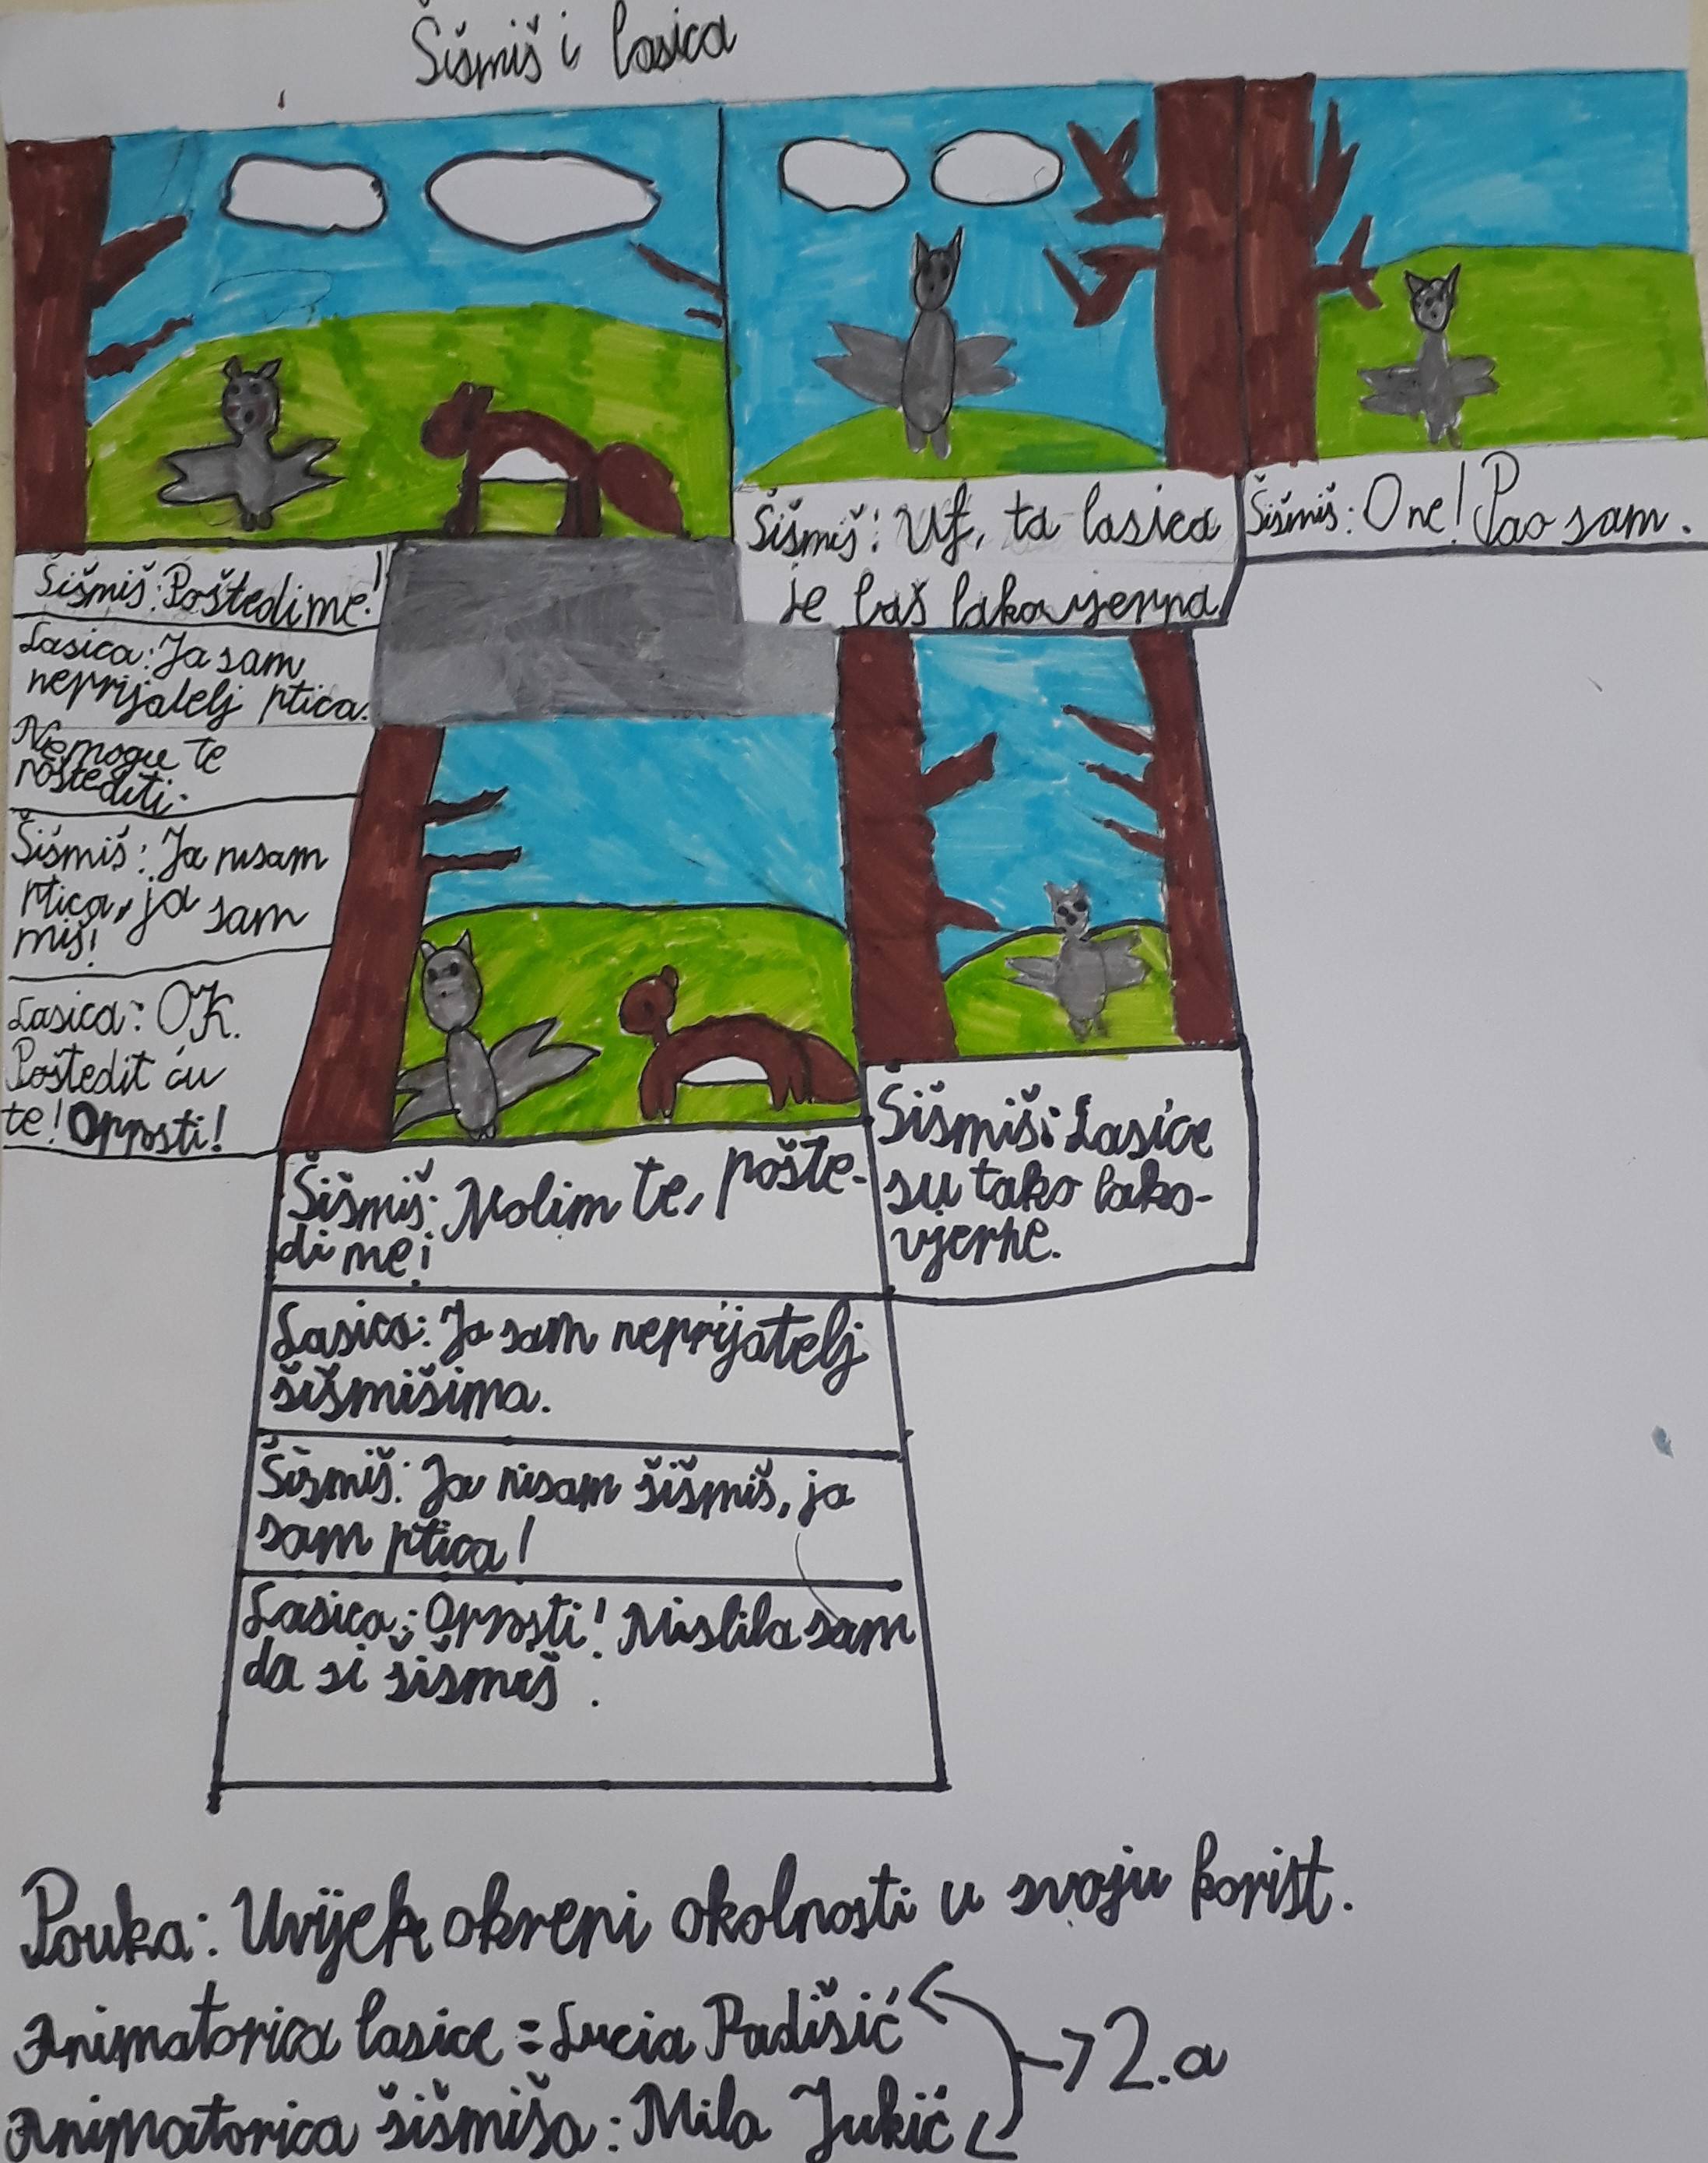 Šišmiš i lasica
Šišmiš: Poštedi me!
Lasica: Ja sam
neprijatelj ptica.
Ne mogu te
poštediti.
Šišmiš: Ja nisam
ptica, ja sam
miš!
Lasica: OK.
Poštedit ću
te! Oprosti!
Šišmiš: Uf, ta lasica
je baš lakovjerna.
Šišmiš: O ne! Pao sam.
Šišmiš: Molim te, pošte-
di me!
Lasica: Ja sam neprijatelj
šišmišima.
Šišmiš: Ja nisam šišmiš, ja
sam ptica!
Lasica: Oprosti! Mislila sam
da si šišmiš.
Šišmiš: Lasice
su tako lako-
vjerne.
Pouka: Uvijek okreni okolnosti u svoju korist.
Animatorica lasice = Lucia Padišić
Animatorica šišmiša: Mila Jukić
2.a